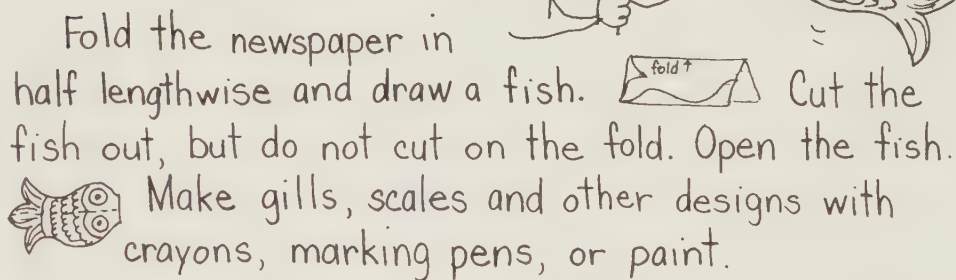 Fold the newspaper in
half lengthwise and draw a fish. fold↑ Cut the
fish out, but do not cut on the fold. Open the fish.
Make gills, scales and other designs with
crayons, marking pens, or paint.